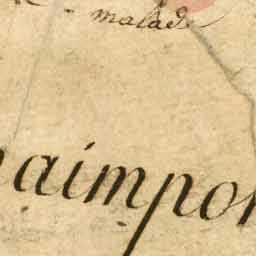 malade
aimpo